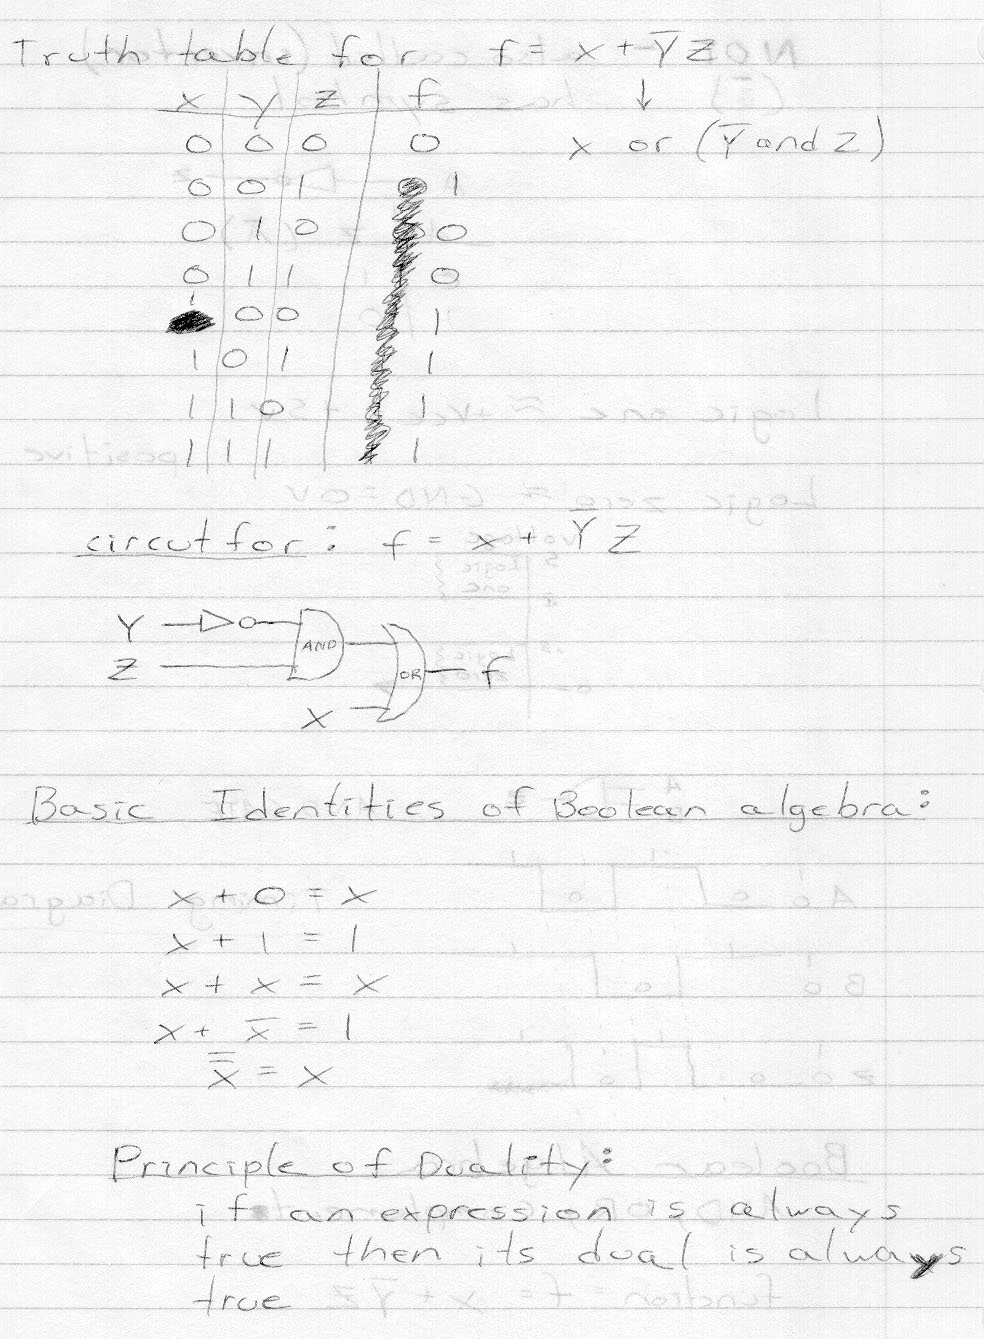 Truth table for f = x + Y̅Z
x y z f
↓
0 0 0 0
x or (Y̅ and Z)
0 0 1 1
0 1 0 0
0 1 1 0
1 0 0 1
1 0 1 1
1 1 0 1
1 1 1 1
circut for: f = x + Y̅ Z
Y
AND
Z
OR
f
X
Basic Identities of Boolean algebra:
x + 0 = x
x + 1 = 1
x + x = x
x + x̅ = 1
x̿ = x
Principle of Duality:
if an expression is always
true then its dual is always
true